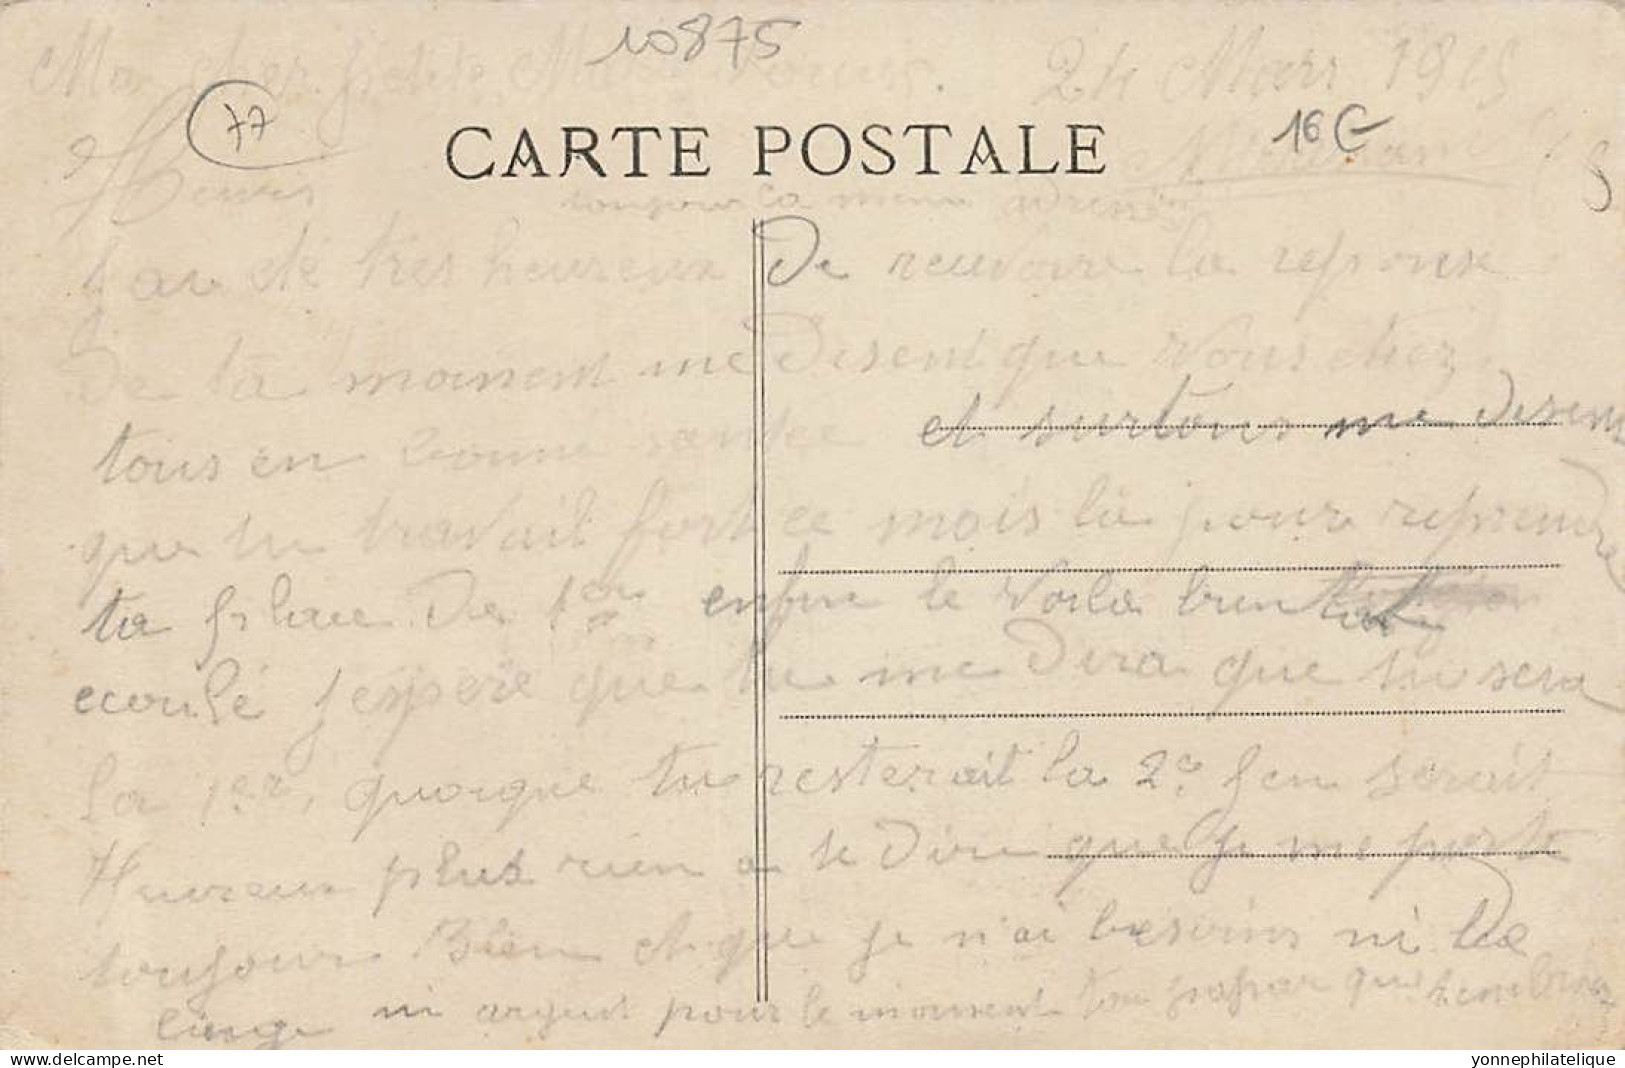 10875
Mon cher petite 24 Mars 1915
77
16€
CARTE POSTALE
Henri
toujours la meme adresse
J ai été tres heureux De recevoire la reponse
De ta moment me Disent que Vous etiez
tous en bonne santee et surtous me Disent
que tu travail fort ce mois la pour reprendre
ta place De 1er enfin le Voila bientot
ecoulé J espere que tu me Dira que tu sera
la 1er, quoique tu resterait la 2e J en serait
Heureux plus rien a te Dire que Je me porte
toujours Bien et que Je n'ai besoins ni De
linge ni argent pour le moment ton papa qui
delcampe.net
yonnephilatelique